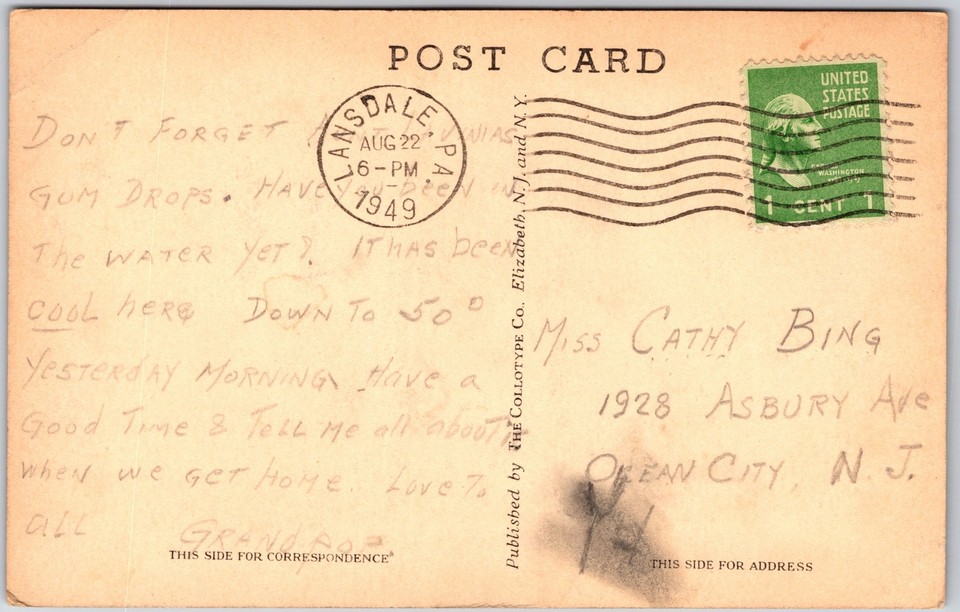 POST CARD
LANSDALE, PA.
AUG 22
6-PM
1949
UNITED
STATES
POSTAGE
WASHINGTON
1 CENT 1
DON'T FORGET
GUM DROPS. HAVE YOU BEEN IN
The WATER YeT? IT HAS been
COOL here DOWN TO 50°
YesTerdAY MORNING Have a
Good Time & TeLL Me all about it
when we GeT Home. Love To
aLL GRANDPOP
THIS SIDE FOR CORRESPONDENCE
Published by THE COLLOTYPE CO., Elizabeth, N.J. and N.Y.
Miss CATHY BING
1928 ASBURY Ave
OCEAN CITY, N.J.
THIS SIDE FOR ADDRESS